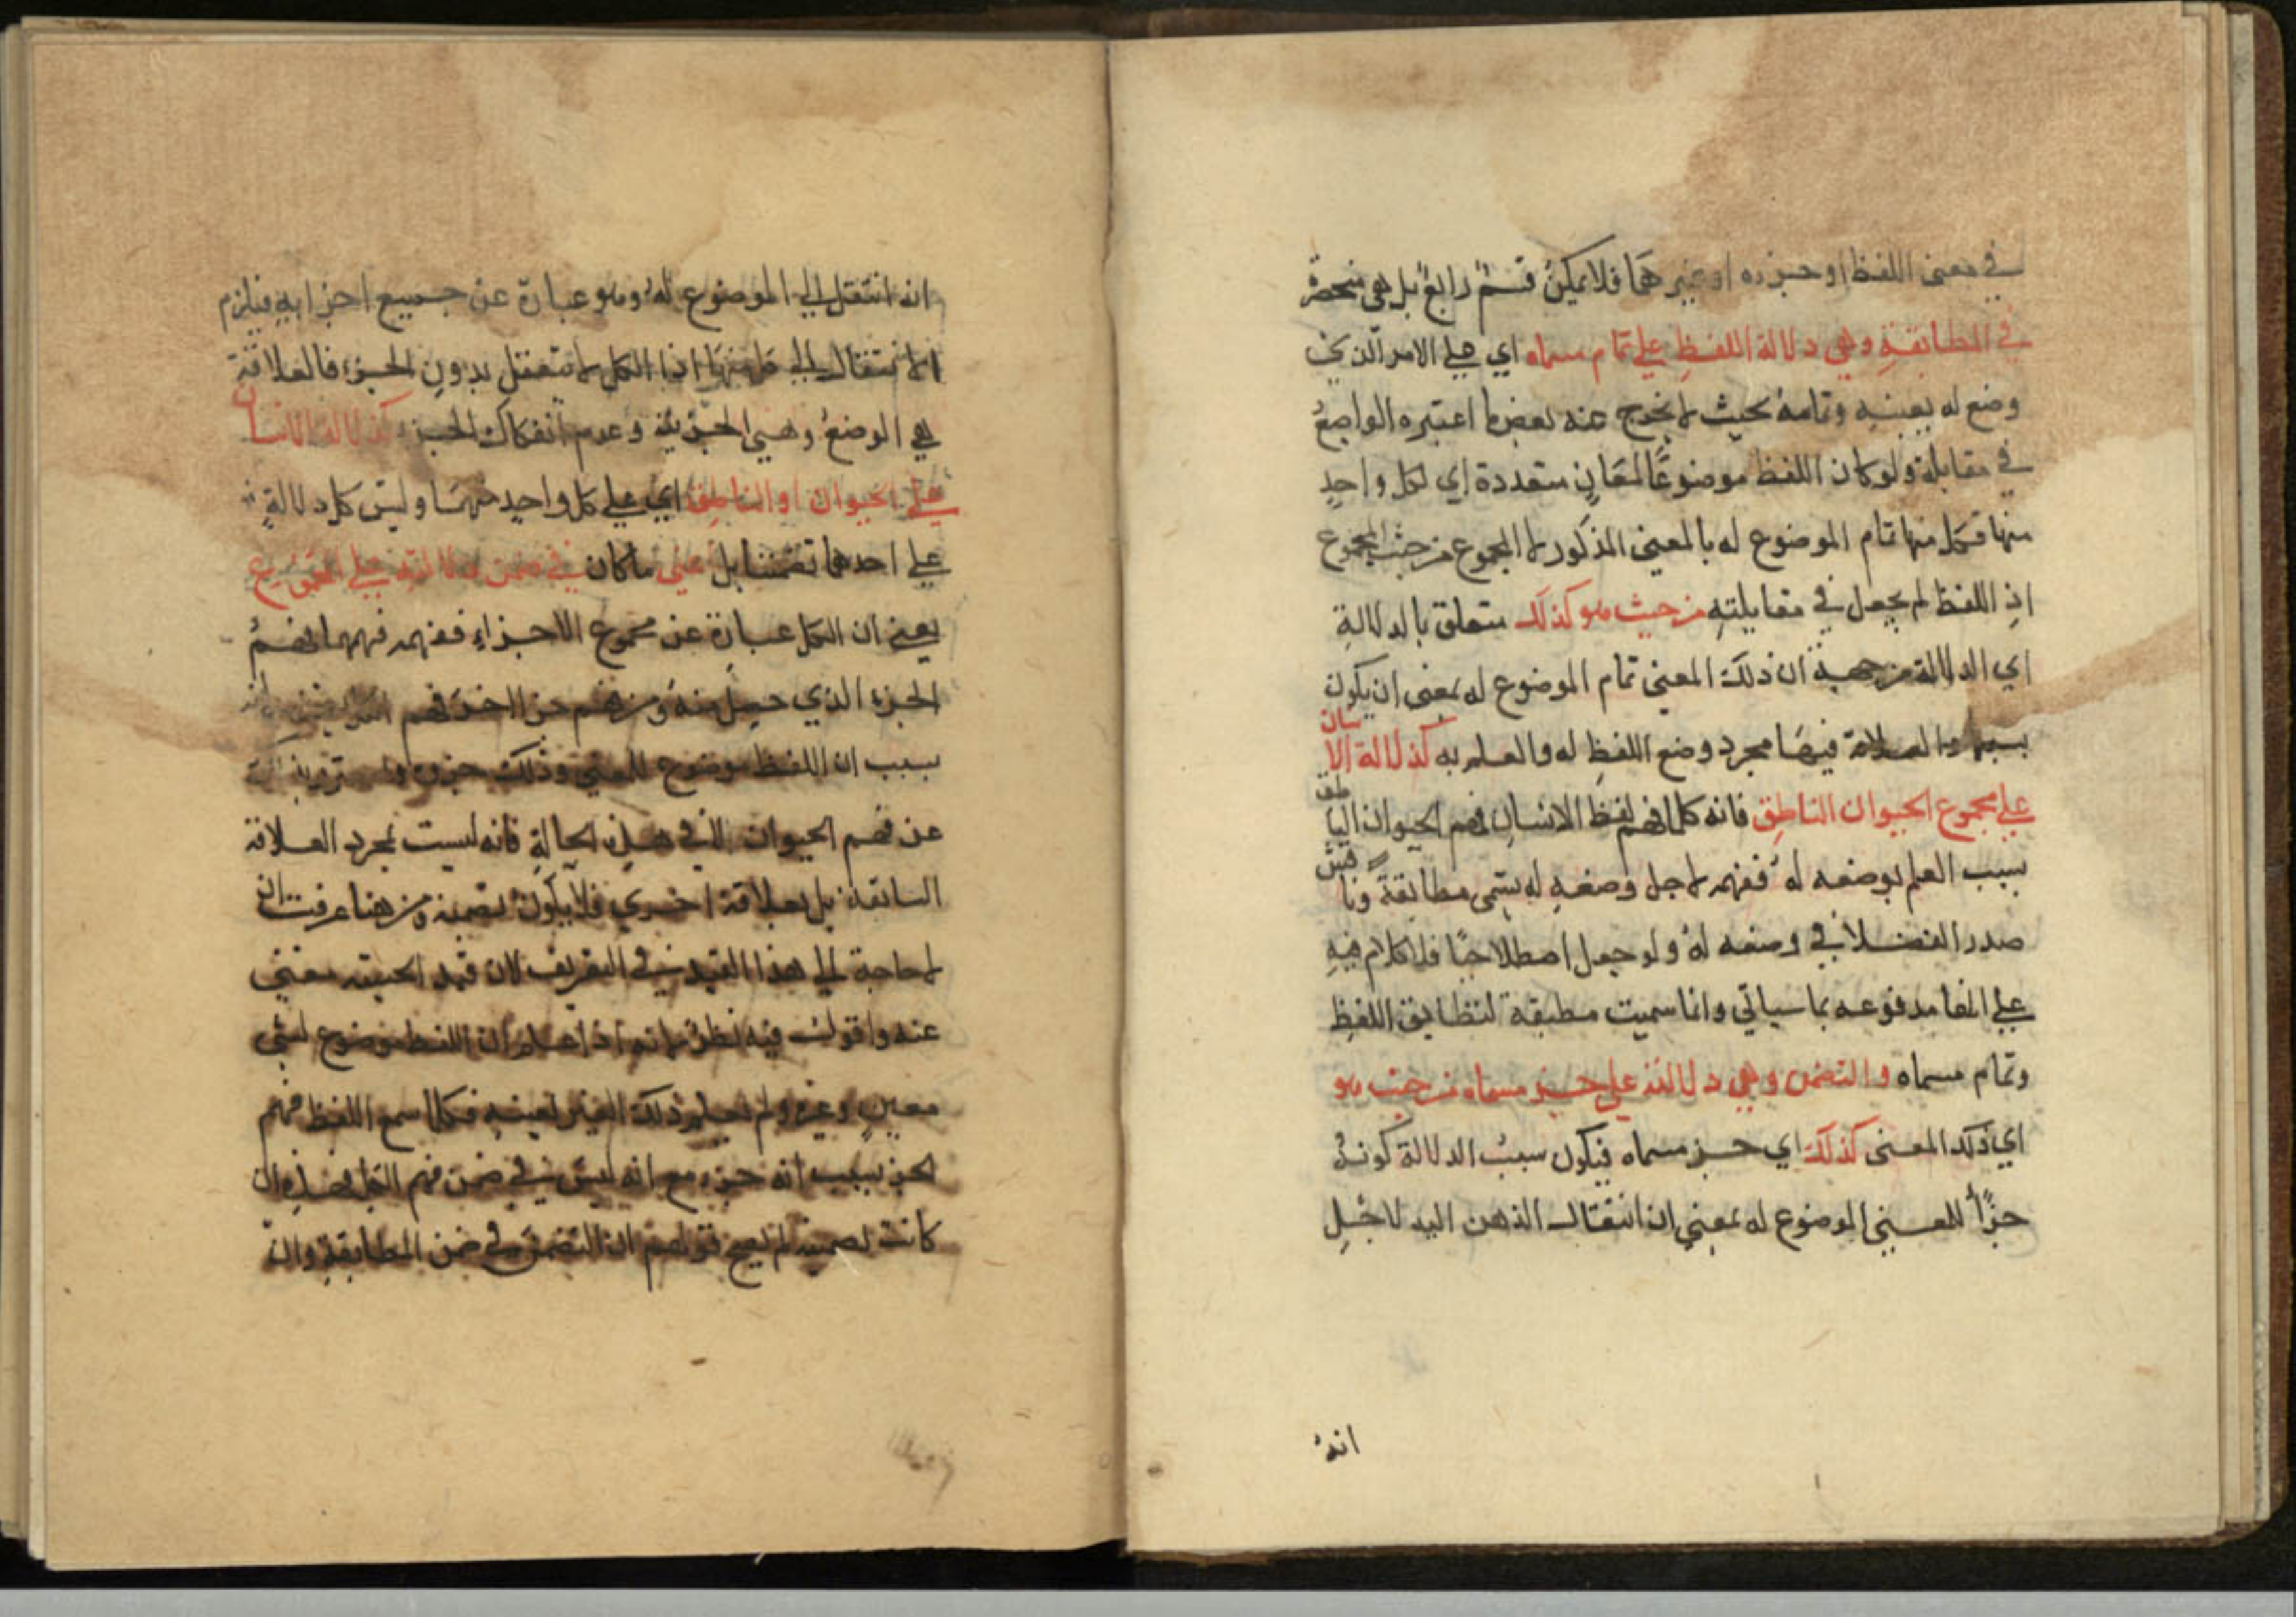 في معنى اللفظ او جزءه او غيرهما فلا يمكن قسم رابع بل هي منحصرة
في المطابقة وهي دلالة اللفظ علي تمام مسماه اي علي الامر الذي
وضع له بعينه وتمامه بحيث لا يخرج عنه بعض ما اعتبره الواضع
في مقابلة ولو كان اللفظ موضوعًا لمعانٍ متعددة اي لكل واحدٍ
منها فكل منها تمام الموضوع له بالمعنى المذكور لا المجموع من حيث المجموع
اذِ اللفظ لم يجعل في مقابلتهِ من حيث هو كذلك متعلق بالدلالةِ
اي الدلالة من جهة ان ذلك المعنى تمام الموضوع له بمعنى ان يكون
بسببه والعلاقة فيها مجرد وضع اللفظِ له والعلم به كدلالة الانسان
علي مجموع الحيوان الناطق فانه كلما فهم لفظ الانسان فهم الحيوان الناطق
بسبب العلم بوضعه له ففهمه لاجل وضعهِ له يسمى مطابقة
صدر الفضلا في وضعه له ولو جعل اصطلاحيًا فلا كلام فيه
علي انها مدفوعه بما سياتي وانما سميت مطبقة لتطابق اللفظِ
وتمام مسماه والتضمن وهي دلالته علي جزء مسماه من حيث هو
اي ذلك المعنى كذلك اي جزء مسماه فيكون سبب الدلالة كونهُ
جزأ للمعنى الموضوع له بمعني ان انتقال الذهن اليه لاجلِ
انهُ
انه انتقل الي الموضوع له وهو عبارة عن جميع اجزايهِ فيلزم
الانتقال الي كل منها اذا الكل لا يتعقل بدون الجزء فالعلاقة
هي الوضع وهي الجزئية وعدم انفكاك الجزء كدلالة الانسان
علي الحيوان او الناطق اي علي كل واحدٍ منهما وليس كل دلالةٍ
علي احدهما تضمنا بل اعني ما كان في ضمن دلالته علي المجموع
يعني ان الكل عبارة عن مجموع الاجزاءِ ففهمه فهمها ففهم
الجزء الذي حصل منه
بسبب ان اللفظ موضوع للمعني وذلك جزوه
عن فهم الحيوان الذي في هذه الحالةِ فانه ليست بمجرد العلاقة
السابقة بل بعلاقة اخري فلا يكون تضمنه ومن هنا عرفت ان
لا حاجة الي هذا القيد في التعريف لان قيد الحيثيه مغني
عنه واقول فيه نظر لانه اذا علم ان اللفظ موضوع لشي
معين وغيره ولم يعلم ذلك الغير بعينه فكلما سمع اللفظ فهم
الجزء بسبب انه جزء مع انه ليس في ضمن فهم الكل فهذه ان
كانت تضمنيه لم يصح قولهم ان التضمن في ضمن المطابقة والا